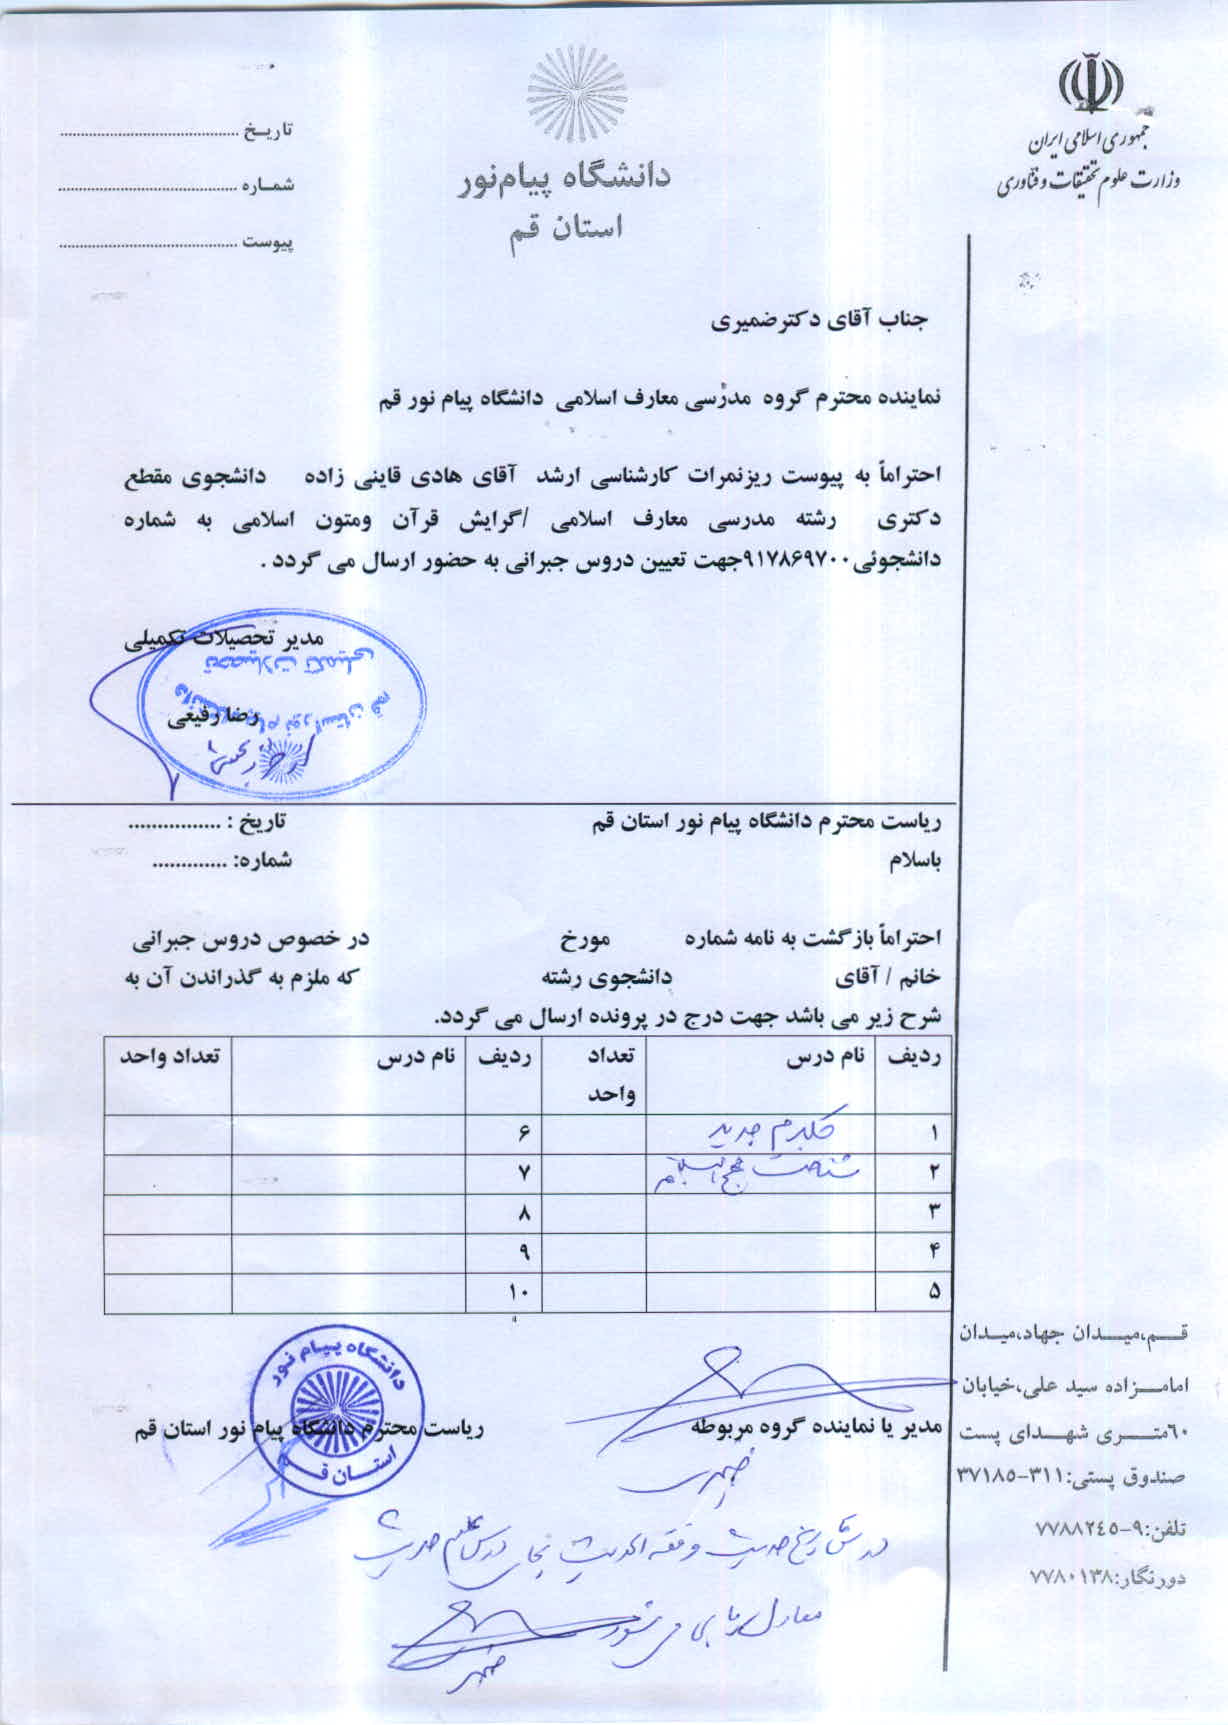 جمهوری اسلامی ایران
وزارت علوم تحقیقات و فناوری
دانشگاه پیام‌نور
استان قم
تاریـخ ........................................
شمـاره ........................................
پیوست ........................................
جناب آقای دکترضمیری
نماینده محترم گروه مدرّسی معارف اسلامی دانشگاه پیام نور قم
احتراماً به پیوست ریزنمرات کارشناسی ارشد آقای هادی قاینی زاده دانشجوی مقطع
دکتری رشته مدرسی معارف اسلامی /گرایش قرآن ومتون اسلامی به شماره
دانشجوئی۹۱۷۸۶۹۷۰۰جهت تعیین دروس جبرانی به حضور ارسال می گردد .
مدیر تحصیلات تکمیلی
تحصیلات تکمیلی
رضا رفیعی
ریاست محترم دانشگاه پیام نور استان قم
تاریخ : ................
باسلام
شماره: .............
احتراماً بازگشت به نامه شماره مورخ در خصوص دروس جبرانی
خانم / آقای دانشجوی رشته که ملزم به گذراندن آن به
شرح زیر می باشد جهت درج در پرونده ارسال می گردد.
ردیف نام درس تعداد واحد ردیف نام درس تعداد واحد
۱ کلام جدید ۶
۲ شناخت ۷
۳ ۸
۴ ۹
۵ ۱۰
دانشگاه پیـام نور
استــان قــم
مدیر یا نماینده گروه مربوطه
ریاست محترم دانشگاه پیام نور استان قم
ضمیری
درس تاریخ حدیث و فقه الحدیث بجای درس علم حدیث
معادل یابی می شود
قــم،میــدان جهاد،میـدان
امامــزاده سید علی،خیابان
٦٠متــری شهــدای پست
صندوق پستی:۳۱۱-۳۷۱۸۵
تلفن:۹-۷۷۸۸۲٤٥
دورنگار:۷۷۸۰۱۳۸